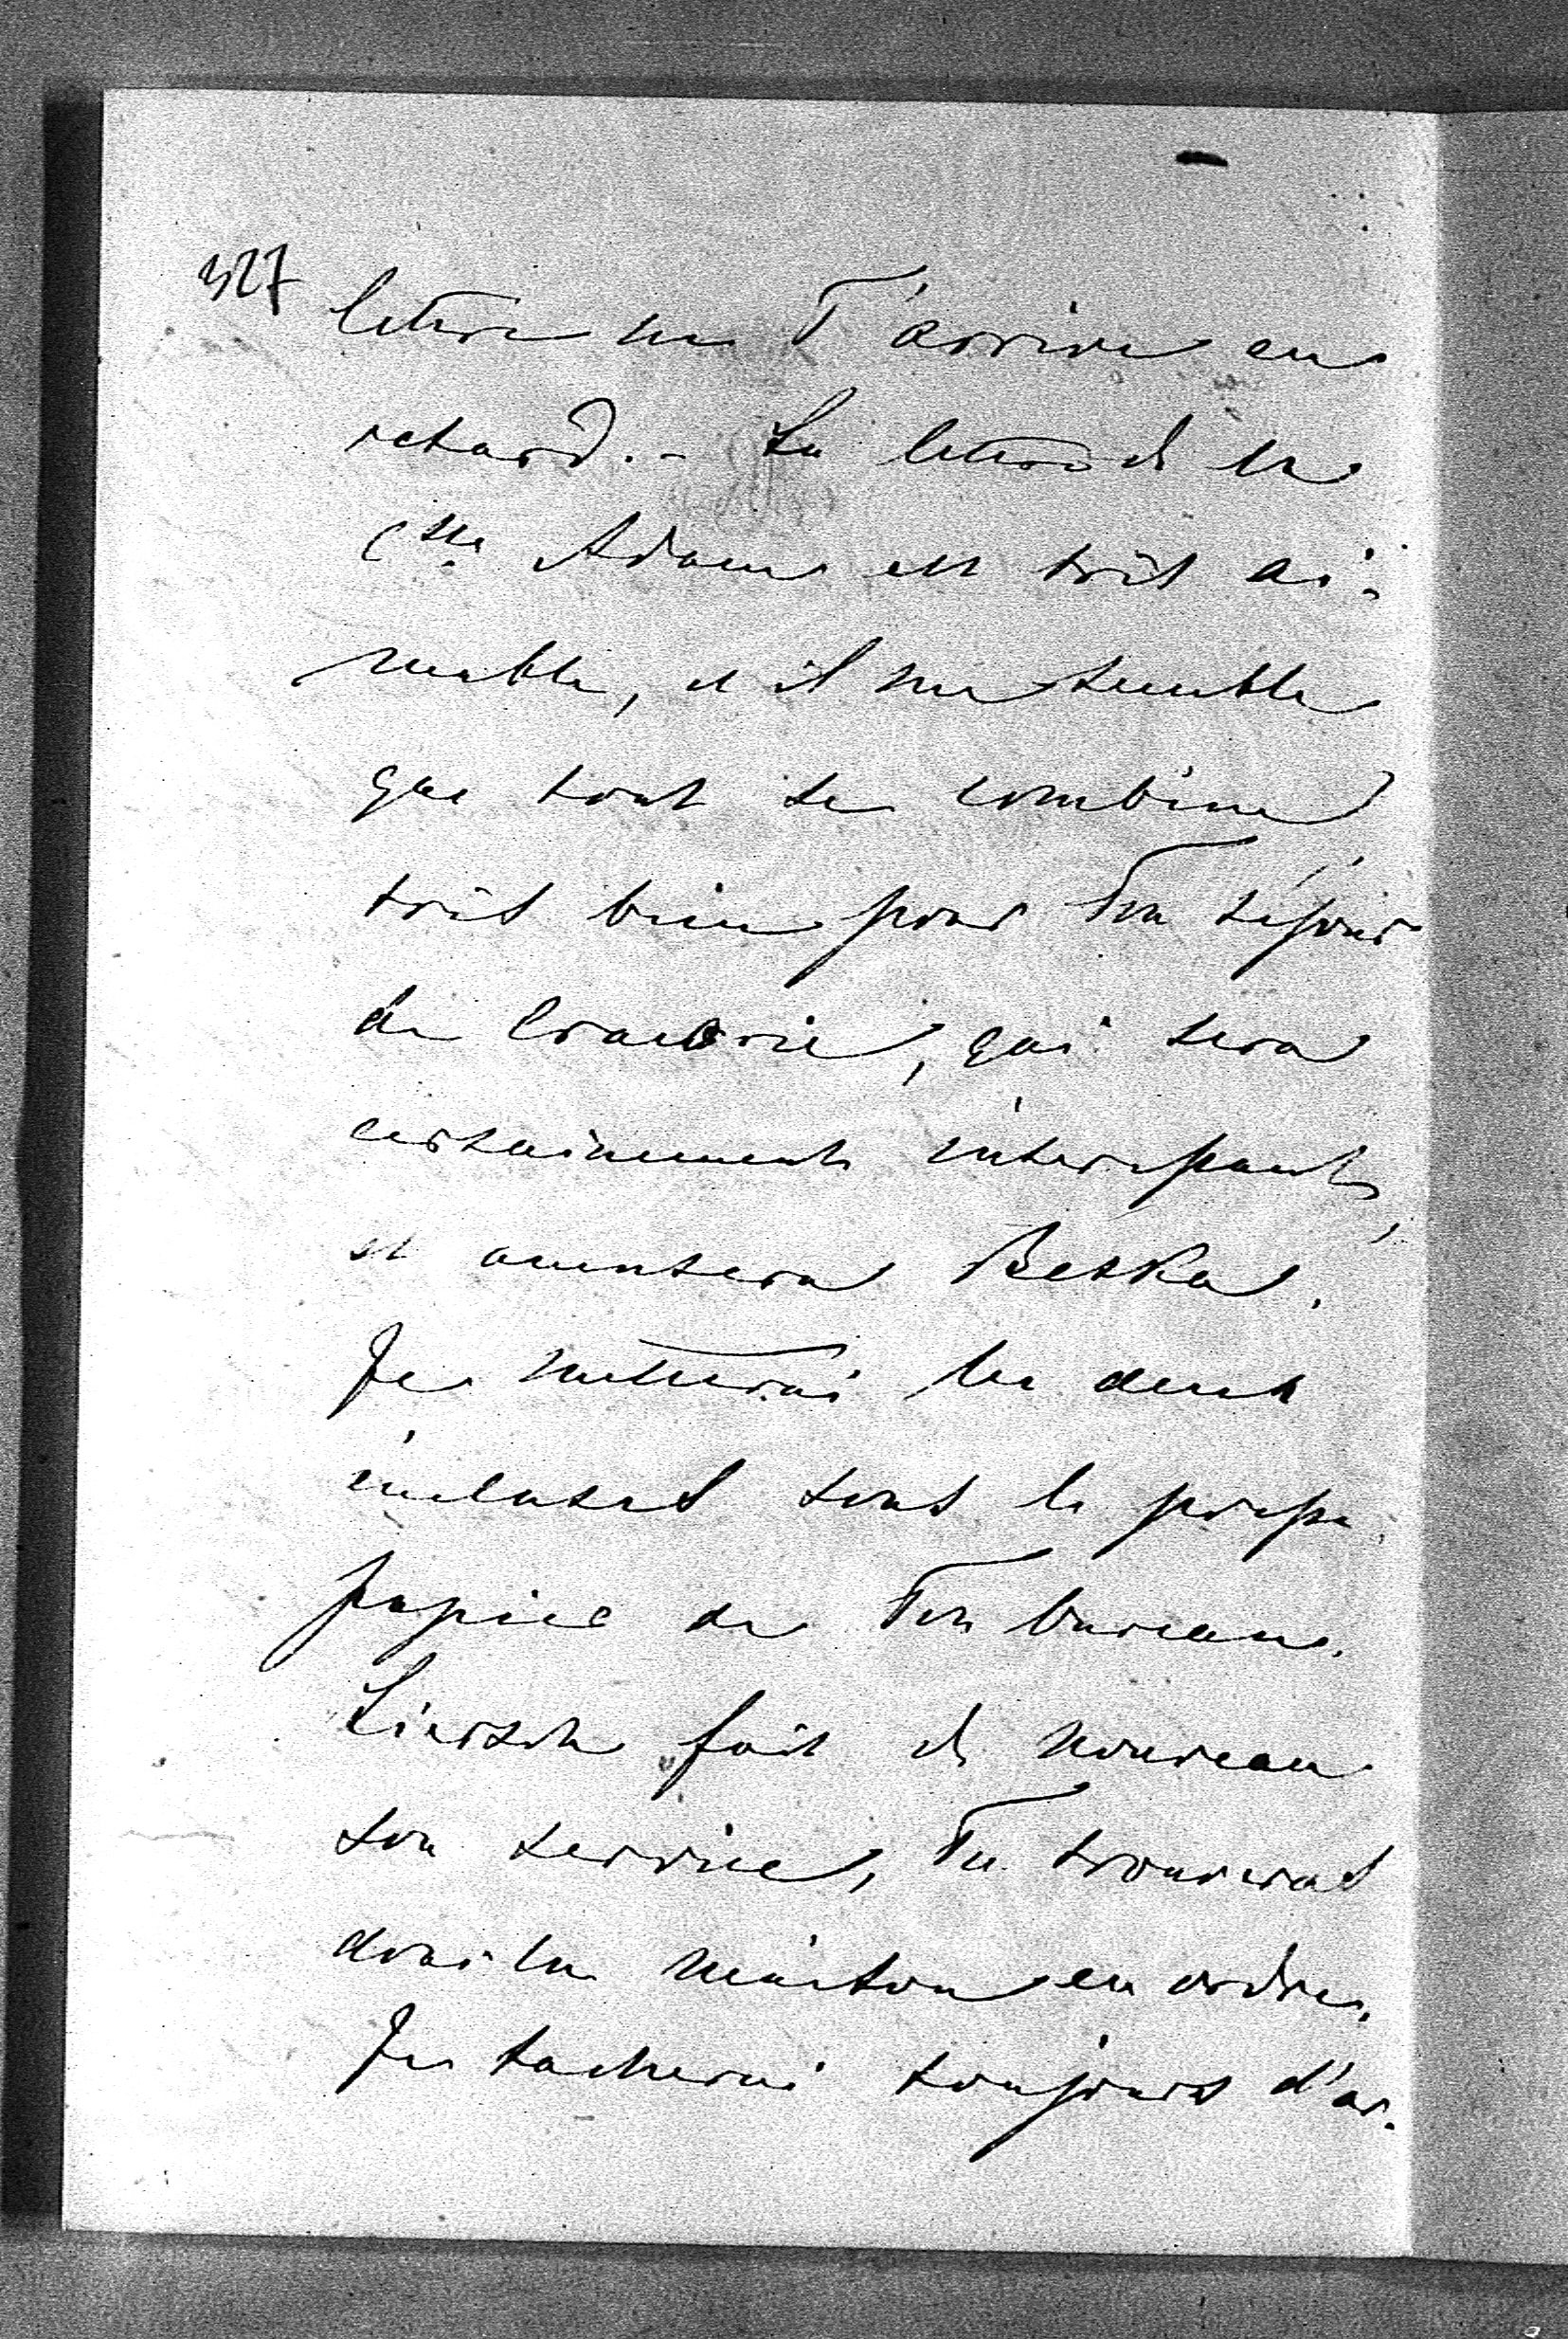 327
lettre ne T'arrive en
retard.- La lettre de la
Csse Adam est très ai-
mable, et il me semble
que tout se combine
très bien pour Ton séjour
de Cracovie, qui sera
certainement interessant,
et amusera Betka.
Je mettrai les deux
incluses sous le presse
papier de Ton bureau.
fait de nouveau
son service, Tu trouveras
donc la maison en ordre.
Je tacherai toujours d'ar-